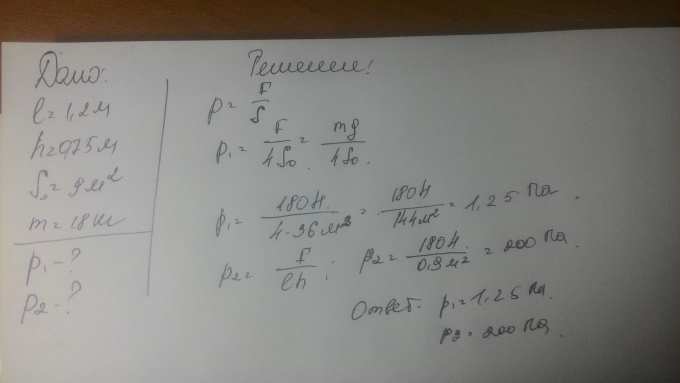 Дано:
l = 1,2 м
h = 0,75 м
S₀ = 9 м²
m = 18 кг
p₁ - ?
p₂ - ?
Решение:
p = F/S
p₁ = F/4S₀ = mg/4S₀.
p₁ = 180Н/4·36 м² = 180Н/144 м² = 1,25 Па.
p₂ = F/lh; p₂ = 180Н/0,9 м² = 200 Па.
Ответ: p₁ = 1,25 Па.
p₂ = 200 Па.